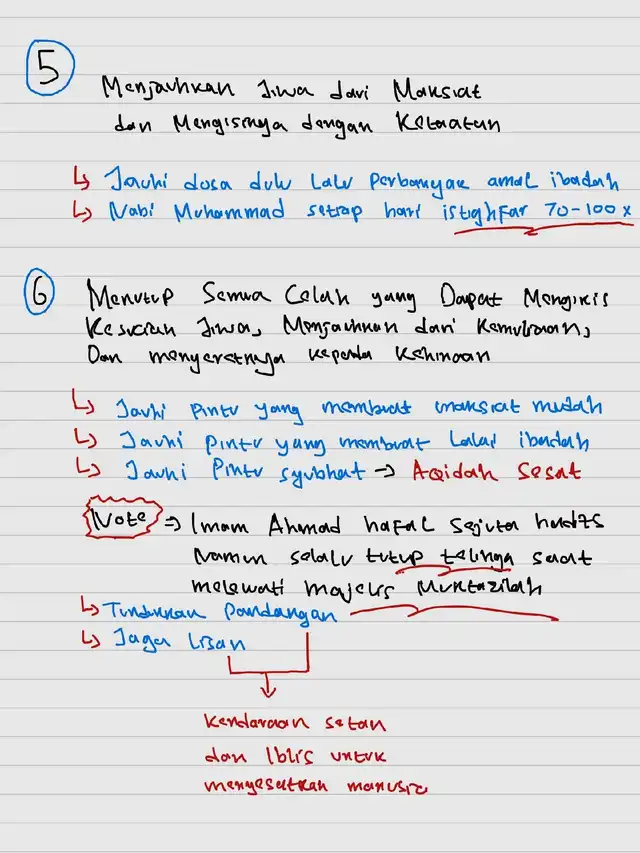 5
Menjauhkan Jiwa dari Maksiat
dan Mengisinya dengan Ketaatan
↳ Jauhi dosa dulu lalu perbanyak amal ibadah
↳ Nabi Muhammad setiap hari istighfar 70-100x
6
Menutup Semua Celah yang Dapat Mengikis
Kesucian Jiwa, Menjauhkan dari Kemuliaan,
Dan menyeretnya kepada Kehinaan
↳ Jauhi pintu yang membuat maksiat mudah
↳ Jauhi pintu yang membuat Lalai ibadah
↳ Jauhi Pintu syubhat → Aqidah Sesat
Note ⇒ Imam Ahmad hafal sejuta hadits
Namun selalu tutup telinga saat
melewati majelis Muktazilah
↳ Tundukkan Pandangan
↳ Jaga Lisan
Kendaraan setan
dan Iblis untuk
menyesatkan manusia